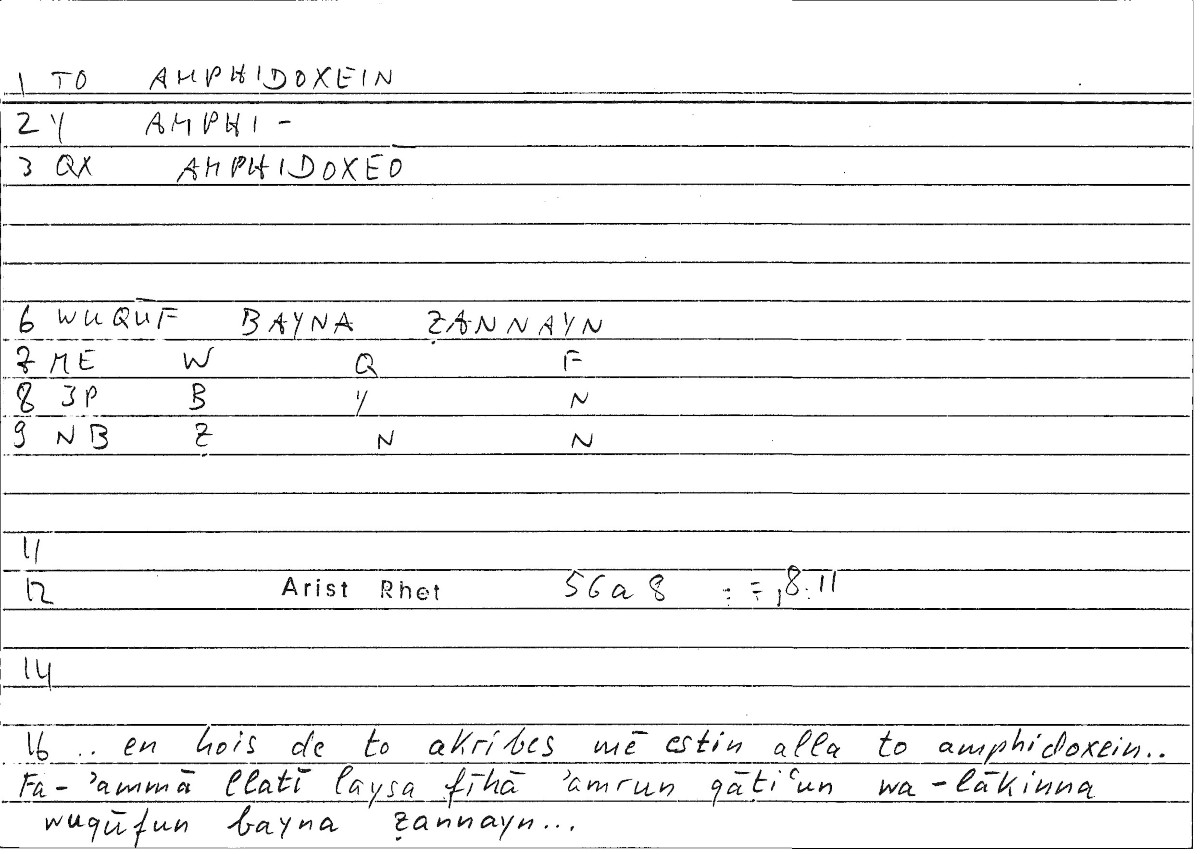 1 TO AMPHIDOXEIN
2 Y AMPHI-
3 QX AMPHIDOXEŌ
6 WUQŪF BAYNA ẒANNAYN
7 ME W Q F
8 3P B Y N
9 NB Ẓ N N
11
12 Arist Rhet 56a8 : = , 8.11
14
16 .. en hois de to akribes mē estin alla to amphidoxein..
Fa-ʾammā llatī laysa fīhā ʾamrun qāṭiʿun wa-lākinna
wuqūfun bayna ẓannayn...